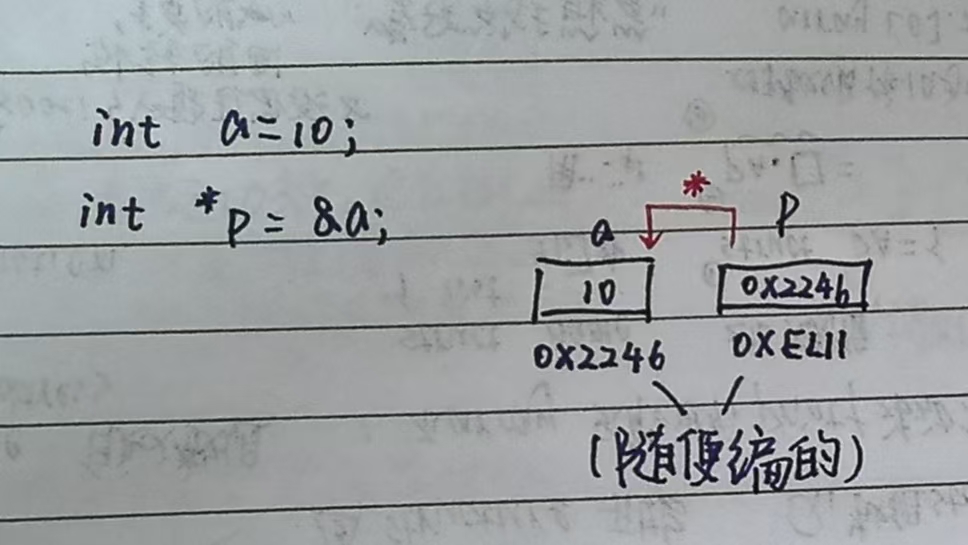 int a=10;
int *p = &a;
*
a p
10 0x2246
0x2246 0xE211
(随便编的)